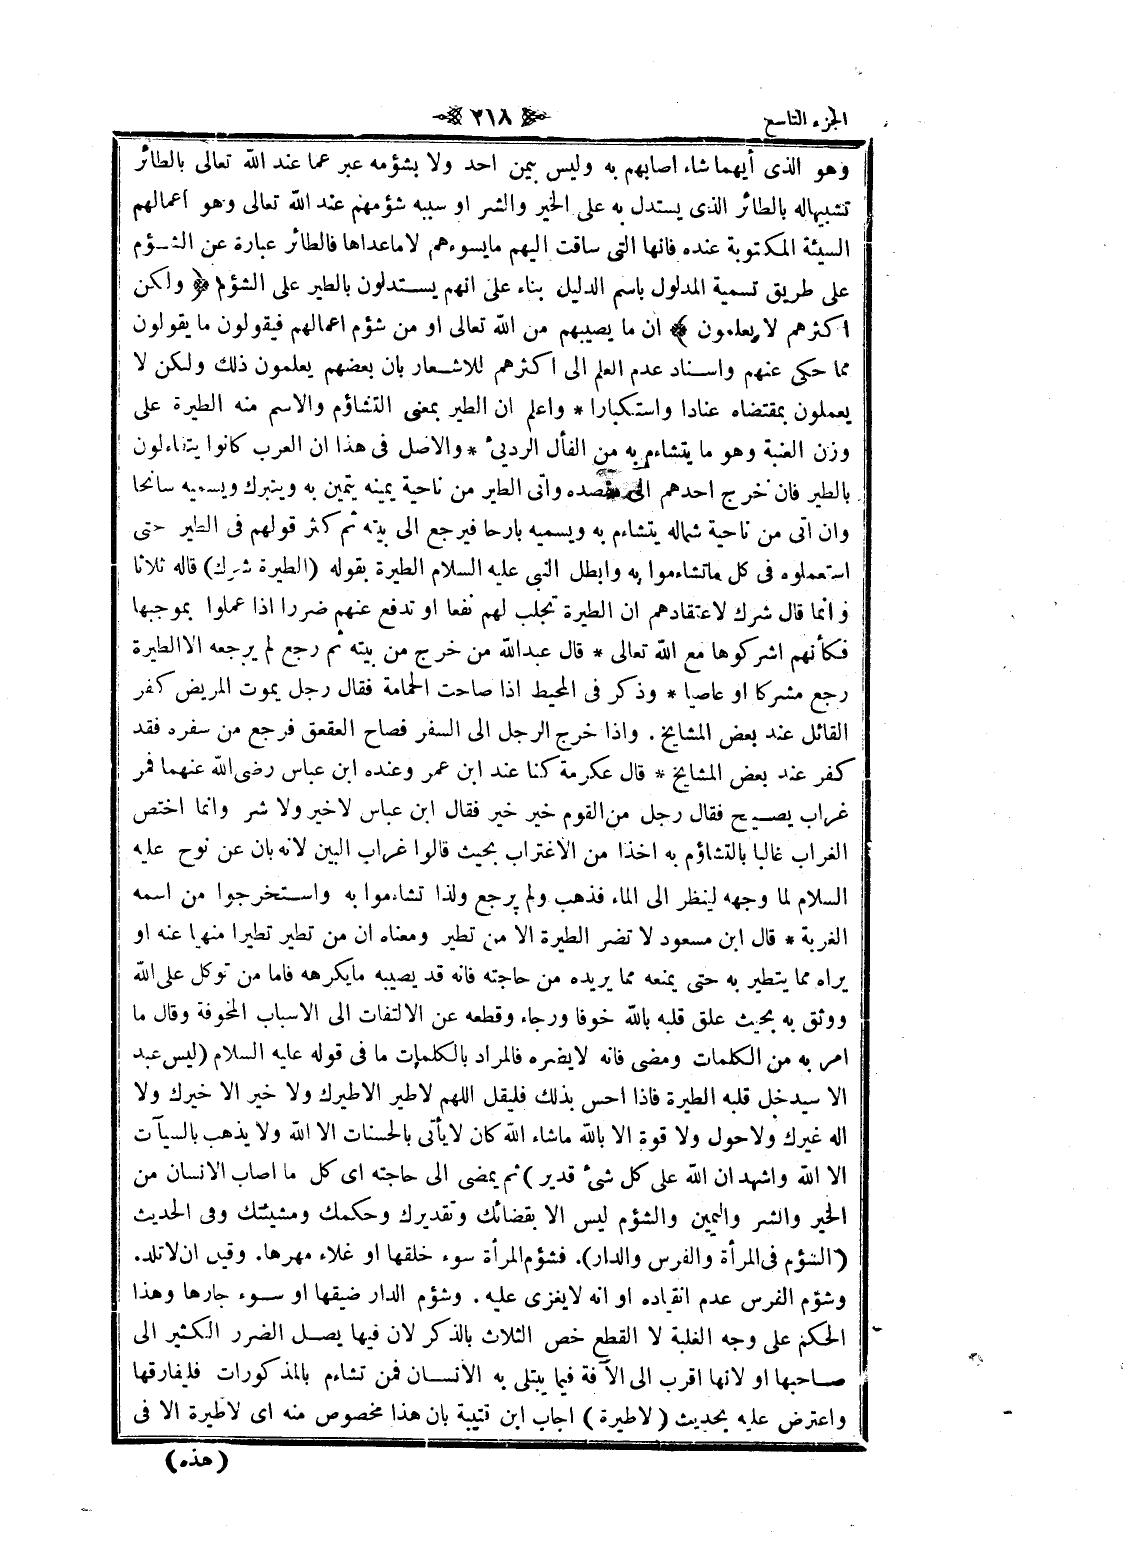 الجزء التاسع
٢١٨
وهو الذى أيهما شاء اصابهم به وليس بيمن احد ولا بشؤمه عبر عما عند الله تعالى بالطائر
تشبيهاله بالطائر الذى يستدل به على الخير والشر او سببه شؤمهم عند الله تعالى وهو أعمالهم
السيئة المكتوبة عنده فانها التى ساقت اليهم مايسوءهم لاماعداها فالطائر عبارة عن الشؤم
على طريق تسمية المدلول باسم الدليل بناء على انهم يستدلون بالطير على الشؤم ﴿ ولكن
اكثرهم لا يعلمون ﴾ ان ما يصيبهم من الله تعالى او من شؤم اعمالهم فيقولون ما يقولون
مما حكى عنهم واسناد عدم العلم الى اكثرهم للاشعار بان بعضهم يعلمون ذلك ولكن لا
يعملون بمقتضاه عنادا واستكبارا * واعلم ان الطير بمعنى التشاؤم والاسم منه الطيرة على
وزن العنبة وهو ما يتشاءم به من الفأل الردىء * والاصل فى هذا ان العرب كانوا يتفاءلون
بالطير فان خرج احدهم الى مقصده واتى الطير من ناحية يمينه يتيمن به ويتبرك ويسميه سانحا
وان اتى من ناحية شماله يتشاءم به ويسميه بارحا فيرجع الى بيته ثم كثر قولهم فى الطير حتى
استعملوه فى كل ماتشاءموا به وابطل النبى عليه السلام الطيرة بقوله (الطيرة شرك) قاله ثلاثا
وانما قال شرك لاعتقادهم ان الطيرة تجلب لهم نفعا او تدفع عنهم ضررا اذا عملوا بموجبها
فكأنهم اشركوها مع الله تعالى * قال عبدالله من خرج من بيته ثم رجع لم يرجعه الاالطيرة
رجع مشركا او عاصيا * وذكر فى المحيط اذا صاحت الحمامة فقال رجل يموت المريض كفر
القائل عند بعض المشايخ . واذا خرج الرجل الى السفر فصاح العقعق فرجع من سفره فقد
كفر عند بعض المشايخ * قال عكرمة كنا عند ابن عمر وعنده ابن عباس رضى الله عنهما فمر
غراب يصيح فقال رجل من القوم خير خير فقال ابن عباس لاخير ولا شر وانما اختص
الغراب غالبا بالتشاؤم به اخذا من الاغتراب بحيث قالوا غراب البين لانه بان عن نوح عليه
السلام لما وجهه لينظر الى الماء فذهب ولم يرجع ولذا تشاءموا به واستخرجوا من اسمه
الغربة * قال ابن مسعود لا تضر الطيرة الا من تطير ومعناه ان من تطير تطيرا منهيا عنه او
يراه مما يتطير به حتى يمنعه مما يريده من حاجته فانه قد يصيبه مايكرهه فاما من توكل على الله
ووثق به بحيث علق قلبه بالله خوفا ورجاء وقطعه عن الالتفات الى الاسباب المخوفة وقال ما
امر به من الكلمات ومضى فانه لايضره فالمراد بالكلمات ما فى قوله عليه السلام (ليس عبد
الا سيدخل قلبه الطيرة فاذا احس بذلك فليقل اللهم لاطير الاطيرك ولا خير الا خيرك ولا
اله غيرك ولاحول ولا قوة الا بالله ماشاء الله كان لايأتى بالحسنات الا الله ولا يذهب بالسيآت
الا الله واشهد ان الله على كل شىء قدير) ثم يمضى الى حاجته اى كل ما اصاب الانسان من
الخير والشر واليمين والشؤم ليس الا بقضائك وتقديرك وحكمك ومشيئتك وفى الحديث
(الشؤم فى المرأة والفرس والدار). فشؤم المرأة سوء خلقها او غلاء مهرها. وقيل ان لاتلد.
وشؤم الفرس عدم انقياده او انه لايغزى عليه . وشؤم الدار ضيقها او سوء جارها وهذا
الحكم على وجه الغلبة لا القطع خص الثلاث بالذكر لان فيها يصل الضرر الكثير الى
صاحبها او لانها اقرب الى الآفة فيما يبتلى به الانسان فمن تشاءم بالمذكورات فليفارقها
واعترض عليه بحديث ( لاطيرة ) اجاب ابن قتيبة بان هذا مخصوص منه اى لاطيرة الا فى
(هذه)